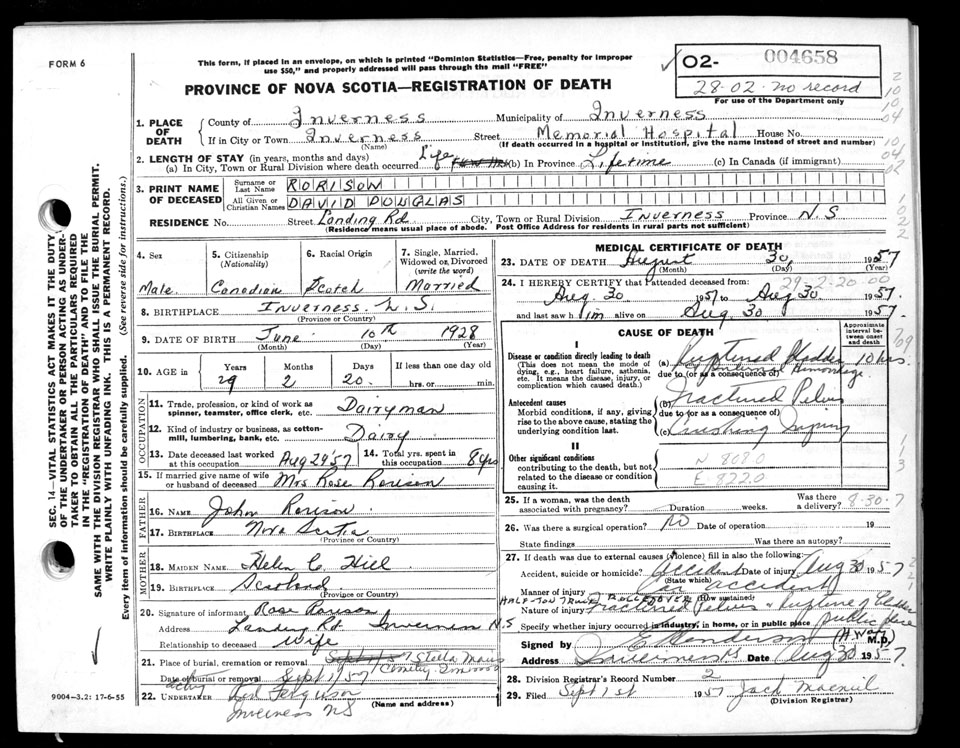 FORM 6
This form, if placed in an envelope, on which is printed "Dominion Statistics—Free, penalty for improper
use $50," and properly addressed will pass through the mail "FREE"
PROVINCE OF NOVA SCOTIA—REGISTRATION OF DEATH
02- 004658
28-02-no record
For use of the Department only
1. PLACE OF DEATH
County of Inverness Municipality of Inverness
If in City or Town Inverness Street Memorial Hospital House No.
(Name) (If death occurred in a hospital or institution, give the name instead of street and number)
2. LENGTH OF STAY (in years, months and days)
(a) In City, Town or Rural Division where death occurred Life (b) In Province Lifetime (c) In Canada (if immigrant)
3. PRINT NAME OF DECEASED
Surname or Last Name RORISON
All Given or Christian Names DAVID DOUGLAS
RESIDENCE No. Street Landing Rd City, Town or Rural Division Inverness Province N.S
(Residence means usual place of abode. Post Office Address for residents in rural parts not sufficient)
4. Sex Male
5. Citizenship (Nationality) Canadian
6. Racial Origin Scotch
7. Single, Married, Widowed or Divorced (write the word) Married
8. BIRTHPLACE Inverness N.S
(Province or Country)
9. DATE OF BIRTH June 10th 1928
(Month) (Day) (Year)
10. AGE in Years Months Days If less than one day old
29 2 20 hrs. or min.
OCCUPATION
11. Trade, profession, or kind of work as spinner, teamster, office clerk, etc. Dairyman
12. Kind of industry or business, as cotton-mill, lumbering, bank, etc. Dairy
13. Date deceased last worked at this occupation Aug 29 '57
14. Total yrs. spent in this occupation 8 yrs
15. If married give name of wife or husband of deceased Mrs Rose Rorison
FATHER
16. NAME John Rorison
17. BIRTHPLACE Nova Scotia
(Province or Country)
MOTHER
18. MAIDEN NAME Helen C. Hill
19. BIRTHPLACE Scotland
(Province or Country)
20. Signature of informant Rose Rorison
Address Landing Rd. Inverness N.S
Relationship to deceased Wife
21. Place of burial, cremation or removal Stella Maris
Cemetery Inverness
Date of burial or removal Sept 1/57
acting
22. UNDERTAKER Ferguson
Inverness NS
(Name and address)
MEDICAL CERTIFICATE OF DEATH
23. DATE OF DEATH August 30 1957
(Month) (Day) (Year)
29-2-20 00
24. I HEREBY CERTIFY that I attended deceased from:
Aug. 30 1957 to Aug 30 1957
and last saw him alive on Aug. 30 1957
CAUSE OF DEATH
Approximate interval between onset and death
I
Disease or condition directly leading to death
(This does not mean the mode of dying, e.g., heart failure, asthenia, etc. It means the disease, injury, or complication which caused death.)
(a) Ruptured Bladder 10 hrs.
Internal Hemorrhage
due to (or as a consequence of)
Antecedent causes
Morbid conditions, if any, giving rise to the above cause, stating the underlying condition last.
(b) Fractured Pelvis
due to (or as a consequence of)
(c) Crushing Injury
II
Other significant conditions
contributing to the death, but not related to the disease or condition causing it.
N 8080
E 8220
25. If a woman, was the death associated with pregnancy? Duration weeks. Was there a delivery?
8-30-7
26. Was there a surgical operation? No Date of operation 19
State findings Was there an autopsy?
27. If death was due to external causes (violence) fill in also the following:
Accident, suicide or homicide? Accident Date of injury Aug 30 1957
(State which)
Manner of injury Car accident
(How sustained)
HALF-TON TRUCK ROLLED OVER
Nature of injury Fractured Pelvis & Rupture of Bladder
Specify whether injury occurred in industry, in home, or in public place public place
Signed by E Henderson M.D.
Address Inverness NS Date Aug 30 1957.
28. Division Registrar's Record Number 2
29. Filed Sept 1st 1957 Jack Macneil
(Division Registrar)
SEC. 14—VITAL STATISTICS ACT MAKES IT THE DUTY
OF THE UNDERTAKER OR PERSON ACTING AS UNDERTAKER TO OBTAIN ALL THE PARTICULARS REQUIRED
IN THE "REGISTRATION OF DEATH" AND TO FILE THE
SAME WITH THE DIVISION REGISTRAR WHO SHALL ISSUE THE BURIAL PERMIT.
WRITE PLAINLY WITH UNFADING INK. THIS IS A PERMANENT RECORD.
Every item of information should be carefully supplied. (See reverse side for instructions.)
9004-3.2: 17-6-55